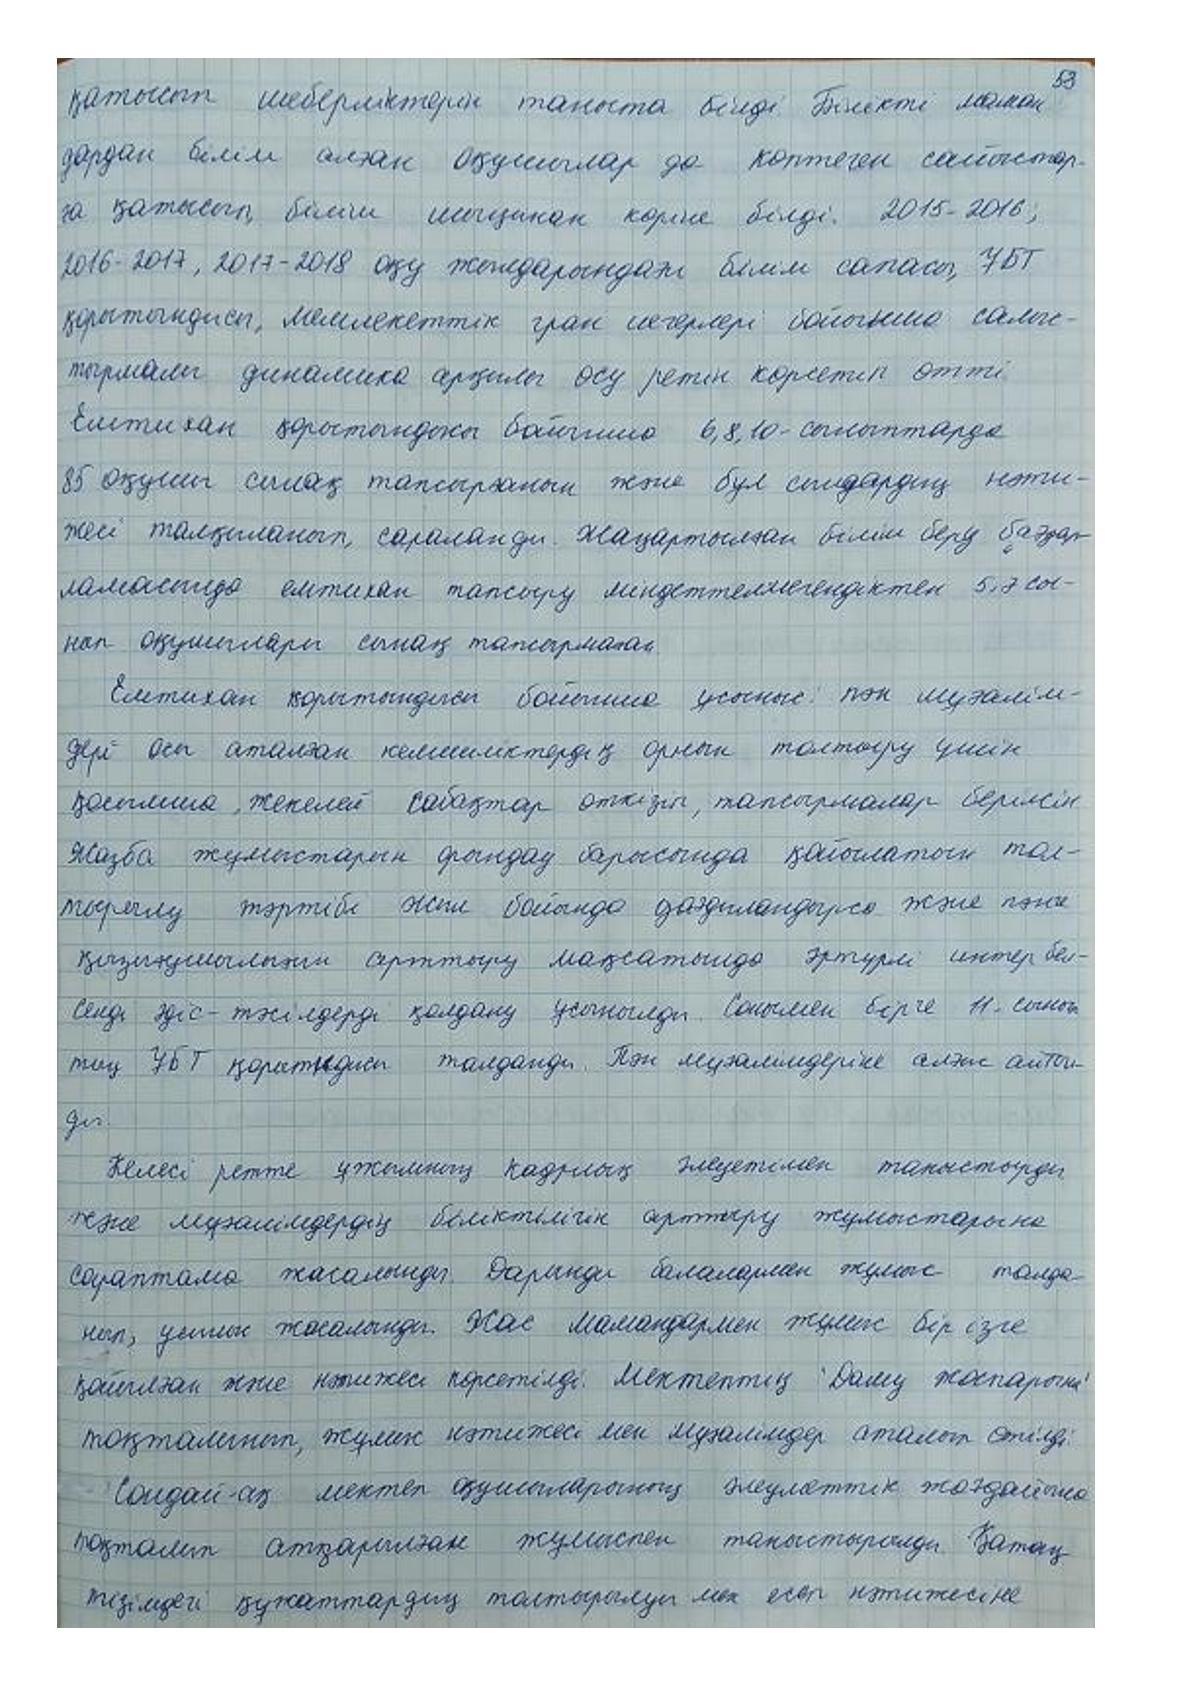 53
қатысып шеберліктерін таныста білді. Білікті маман
дардан білім алған оқушылар да көптеген сайыстар-
ға қатысып, білім шыңынан көріне білді. 2015-2016;
2016-2017, 2017-2018 оқу жылдарындағы білім сапасы, ҰБТ
қорытындысы, мемлекеттік гран иегерлері бойынша салыс-
тырмалы динамика арқылы өсу ретін көрсетіп өтті.
Емтихан қорытындысы бойынша 6,8,10-сыныптарда
85 оқушы сынақ тапсырғанын және бұл сындардың нәти-
жесі талқыланып, сараланды. Жаңартылған білім беру бағдар-
ламасында емтихан тапсыру міндеттелмегендіктен 5,7 сы-
нып оқушылары сынақ тапсырмаған.
Емтихан қорытындысы бойынша ұсыныс: пән мұғалім-
дері осы аталған кемшіліктердің орнын толтыру үшін
қосымша, жекелей сабақтар өткізіп, тапсырмалар берілсін
Жазба жұмыстарын орындау барысында қойылатын тал-
тырылу тәртібі жыл бойында дағдыландырса және пәнге
қызығушылығын арттыру мақсатында әртүрлі интер бел-
сенді әдіс-тәсілдерді қолдану ұсынылды. Сонымен бірге 11-сынып
тың ҰБТ қорытындысы талданды. Пән мұғалімдеріне алғыс айтыл-
ды.
Келесі ретте ұжымның кадрлық әлеуетімен таныстырды
және мұғалімдердің біліктілігін арттыру жұмыстарына
сараптама жасалынды. Дарынды балалармен жұмыс талда-
нып, ұсыныс жасалынды. Жас мамандармен жұмыс бір ізге
қойылған және нәтижесі көрсетілді. Мектептің "Даму жоспарына"
тоқталынып, жұмыс нәтижесі мен мұғалімдер аталып өтілді.
Сондай-ақ мектеп оқушыларының әлеуметтік жағдайына
тоқталып атқарылған жұмыспен таныстырылды. Қатаң
тізімдегі құжаттардың толтырылуы мен есеп нәтижесіне